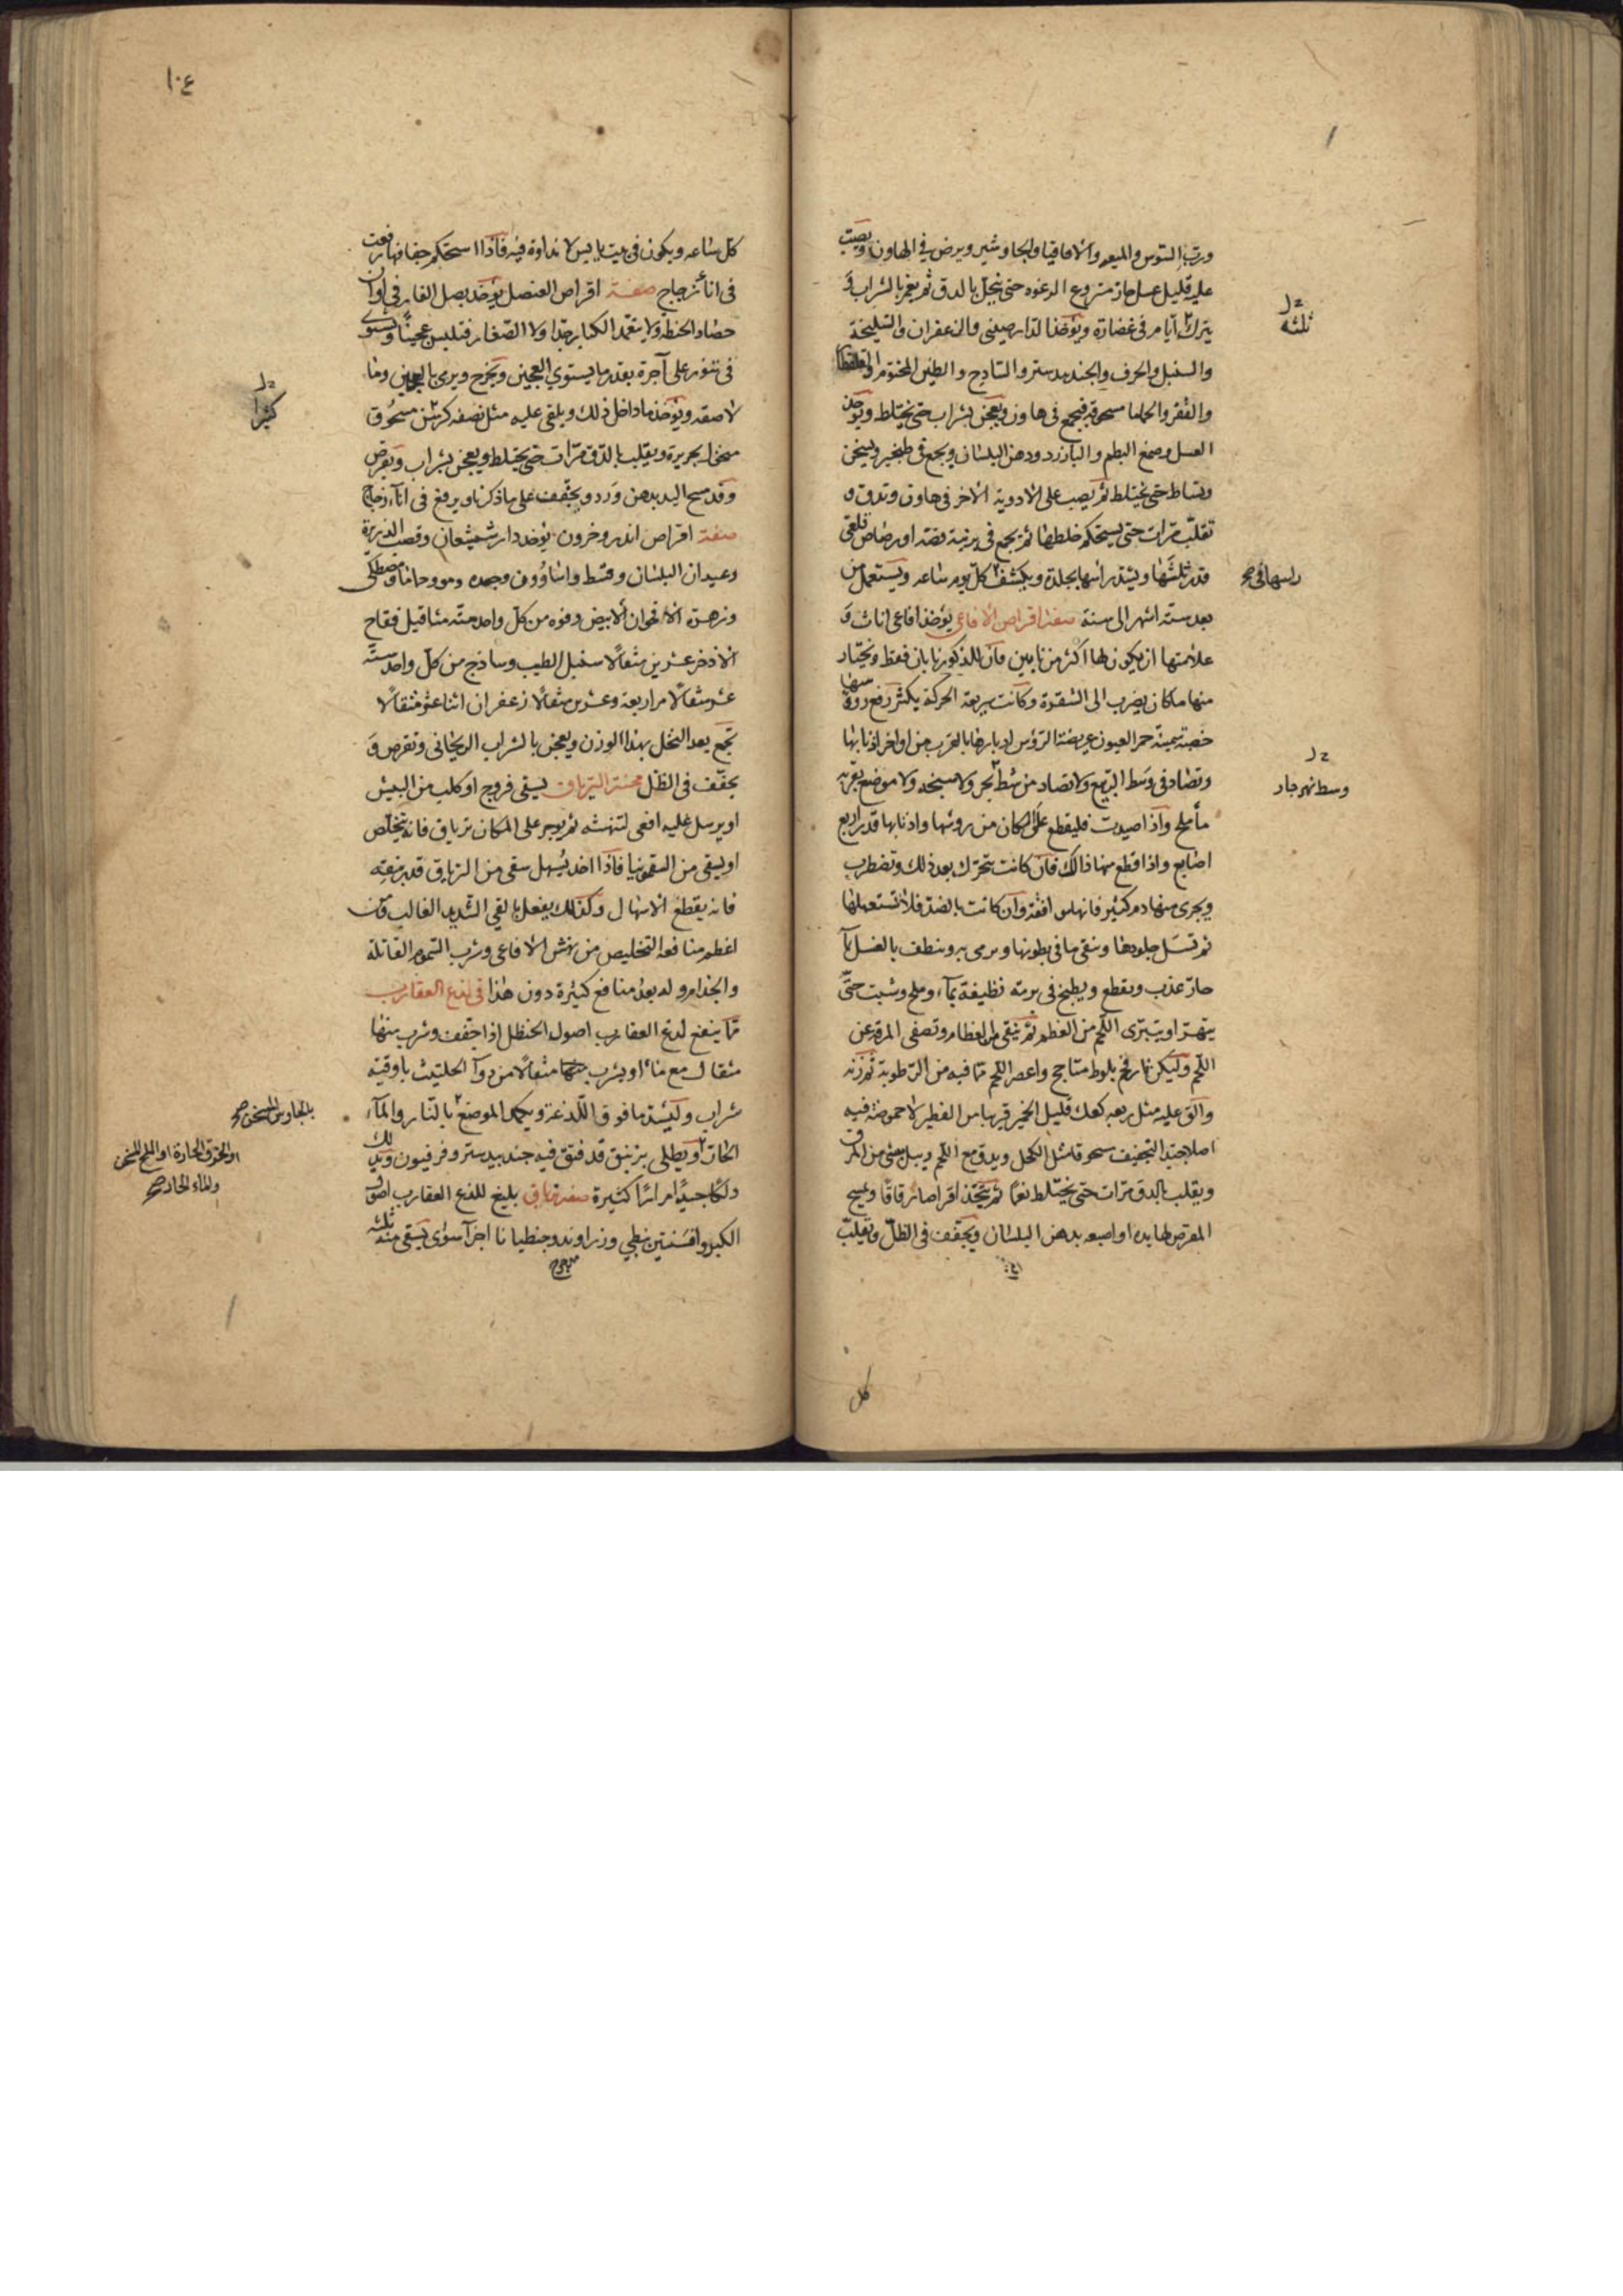 ورب السوس والميعه والاقاقيا والجاوشير ويرض في الهاون ويصب
عليه قليل عسل حار منزوع الرغوه حتى ينحل بالدق ثم يغمر بالشراب و
يترك ايام في غضارة ويؤخذ الدارصيني والزعفران والسليخة
والسنبل والحرف والجندبيدستر والساذج والطين المختوم والقلقطار
والقفر والحاما مسحوقه فيجمع في هاون ويعجن بشراب حتى يختلط ويؤخذ
العسل وصمغ البطم والبارزد ودهن البلسان ويجمع في طنجير ويسخن
ويساط حتى يختلط ثم يصب على الادوية الاخر في هاون وتدق و
تقلب مرات حتى يستحكم خلطها ثم يجمع في برنية فضة او رصاص فلقى
قدر ثلثها ويشد راسها بجلدة ويكشف كل يوم ساعه ويستعمل من
بعد ستة اشهر الى سنة صفة اقراص الافاعي يؤخذ افاعي اناث و
علامتها ان يكون لها اكثر من نابين فان للذكور نابان فقط ويختار
منها ما كان يضرب الى الشقرة وكانت سريعة الحركة يكثر رفع رؤسها
خصبة سمينة حمر العيون عريضة الرؤس ادبارها بالقرب من اواخر اذنابها
وتصاد في وسط الربيع ولا تصاد من شط بحر ولا سبخه ولا موضع بقربه
ماء ملح واذا صيدت فليقطع على المكان من روسها واذنابها قدر اربع
اصابع واذا قطع منها ذالك فان كانت تتحرك بعد ذلك وتضطرب
ويجرى منها دم كثير فانها موافقة وان كانت بالضد فلا تستعملها
ثم تسل جلودها وينقى ما في بطونها ويرمى به وينظف بالغسل بماء
حار عذب ويقطع ويطبخ في برمه نظيفة بماء وملح وشبت حتى
يتهرا ويتبرى اللحم من العظم ثم ينقى من العظام وتصفى المرق عن
اللحم وليكن نار فحم بلوط متاجج واعصر اللحم مما فيه من الرطوبة ثم زنه
والق عليه مثل ربعه كعك قليل الخمير قريبا من الفطير لا حموضة فيه
اصلا جيد التجفيف مسحوقا مثل الكحل ويدق مع اللحم ويبل بشئ من المرق
ويقلب بالدق مرات حتى يختلط نعما ثم يتخذ اقراصا رقاقا ويمسح
المقرص لها يده او اصبعه بدهن البلسان ويجفف في الظل وتقلب
كل
ثلثه
راسها في صح
وسط نهر جار
١٠٤
كل ساعه ويكون في بيت يابس لا نداوة فيه فاذا استحكم جفافها رفعت
في اناء زجاج صفة اقراص العنصل يؤخذ بصل الفار في اوان
حصاد الحنطه ولا يتعمد الكبار جدا ولا الصغار فتلبس عجينا وتشوى
في تنور على آجرة بقدر ما يستوي العجين ويخرج ويرمى بالعجين وما
لاصقه ويؤخذ ما داخل ذلك ويلقى عليه مثل نصفه كرسن مسحوق
منخل بحريرة ويقلب بالدق مرات حتى يختلط ويعجن بشراب ويقرص
وقد مسح اليد بدهن ورد ويجفف على ما ذكرنا ويرفع في اناء زجاج
صفة اقراص اندروخرون يؤخذ دارشيشعان وقصب الذريرة
وعيدان البلسان وقسط واسارون وحمده ومو وحاما ومصطكى
وزهرة الاقحوان الابيض وفوه من كل واحد ستة مثاقيل فقاح
الاذخر عشرين مثقالا سنبل الطيب وساذج من كل واحد ستة
عشر مثقالا مر اربعة وعشرين مثقالا زعفران اثنا عشر مثقالا
تجمع بعد النخل بهذا الوزن ويعجن بالشراب الريحاني وتقرص و
يجفف في الظل محنة الترياق يسقى فروج او كلب من البيش
او يرسل عليه افعى لتنهشه ثم يوجر على المكان ترياق فانه يتخلص
او يسقى من السقمونيا فاذا اخذ يسهل سقى من الترياق قدر بندقه
فانه يقطع الاسهال وكذلك يفعل بالقي الشديد الغالب وان
اعظم منافعه التخليص من نهش الافاعي وشرب السموم القاتلة
والجذام وله بعد منافع كثيرة دون هذا في لدغ العقارب
مما ينفع لدغ العقارب اصول الحنظل اذا جفف وشرب منها
مثقال مع ماء او يشرب مثقالا من دوآ الحلتيت باوقية
شراب وليشد ما فوق اللدغة ويكمد الموضع بالنار والماء
الحار او يطلى بزنبق قد فتق فيه جندبيدستر وفرفيون ويدلك
دلكا جيدا مرارا كثيرة صفة ترياق بليغ للذع العقارب اصول
الكبر وافسنتين نبطي وزراوند وجنطيانا اجزآ سوى يسقى منه ثلثه
كثيرا
بالجاورس المسخن صح
او الخرق الحارة او الملح المسخن
والماء الحار صح